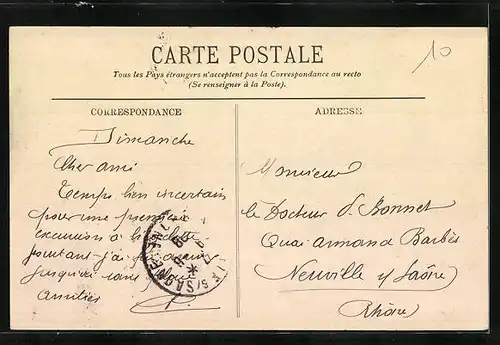 10
CARTE POSTALE
Tous les Pays étrangers n'acceptent pas la Correspondance au recto
(Se renseigner à la Poste).
CORRESPONDANCE
Dimanche
Cher ami
Temps bien incertain
pour une première
excursion à
pourtant j'ai
jusqu'ici sans
Amitiés
ADRESSE
Monsieur
le Docteur d. Bonnet
Quai armand Barbès
Neuville s/ Saône
Rhône